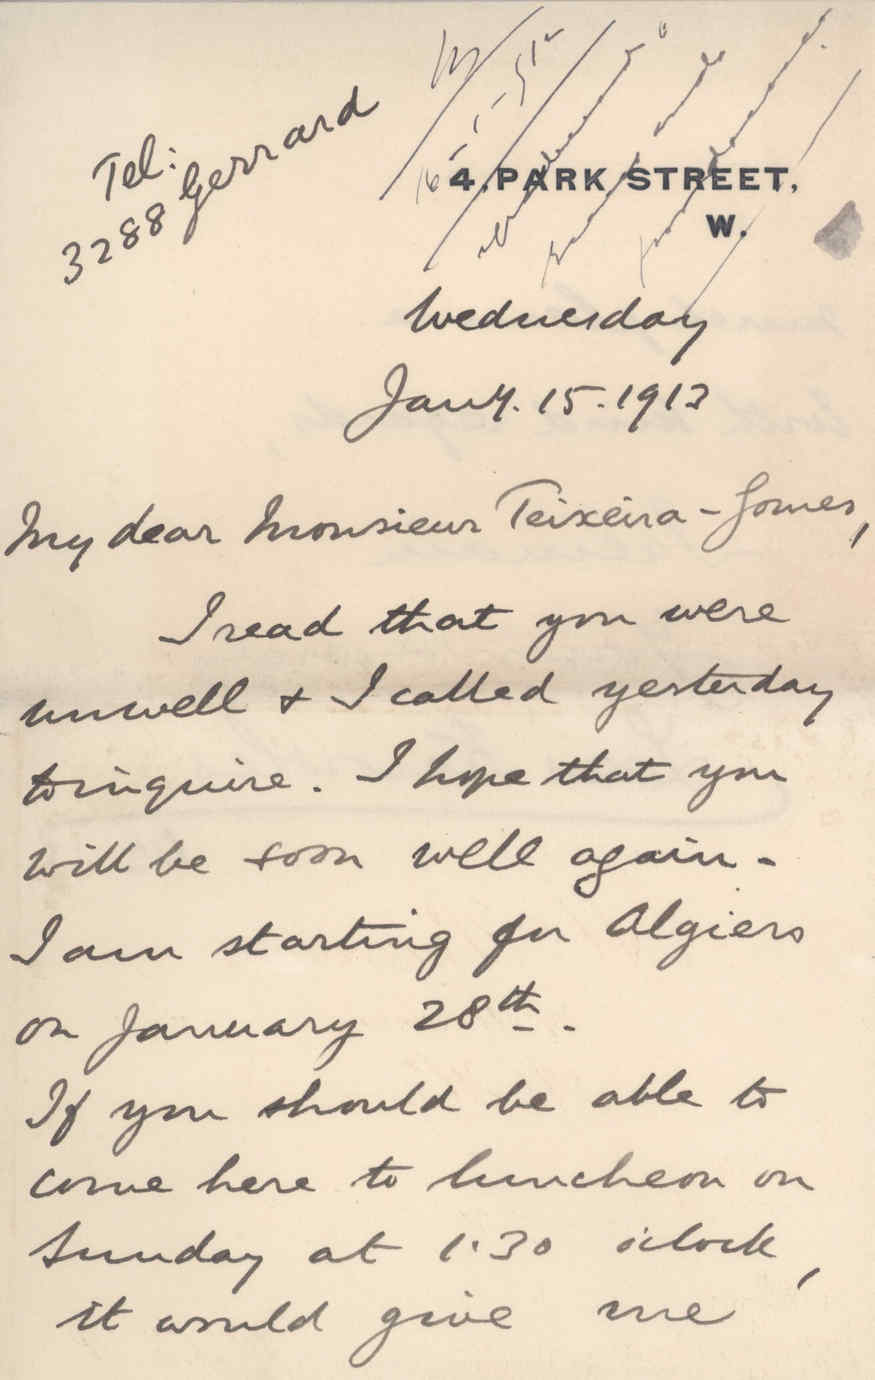 Tel:
3288 Gerrard
4, PARK STREET,
W.
Wednesday
Jany. 15. 1913
My dear Monsieur Teixeira-Gomes,
I read that you were
unwell & I called yesterday
to inquire. I hope that you
will be soon well again -
I am starting for Algiers
on January 28th.
If you should be able to
come here to luncheon on
Sunday at 1.30 o'clock,
it would give me